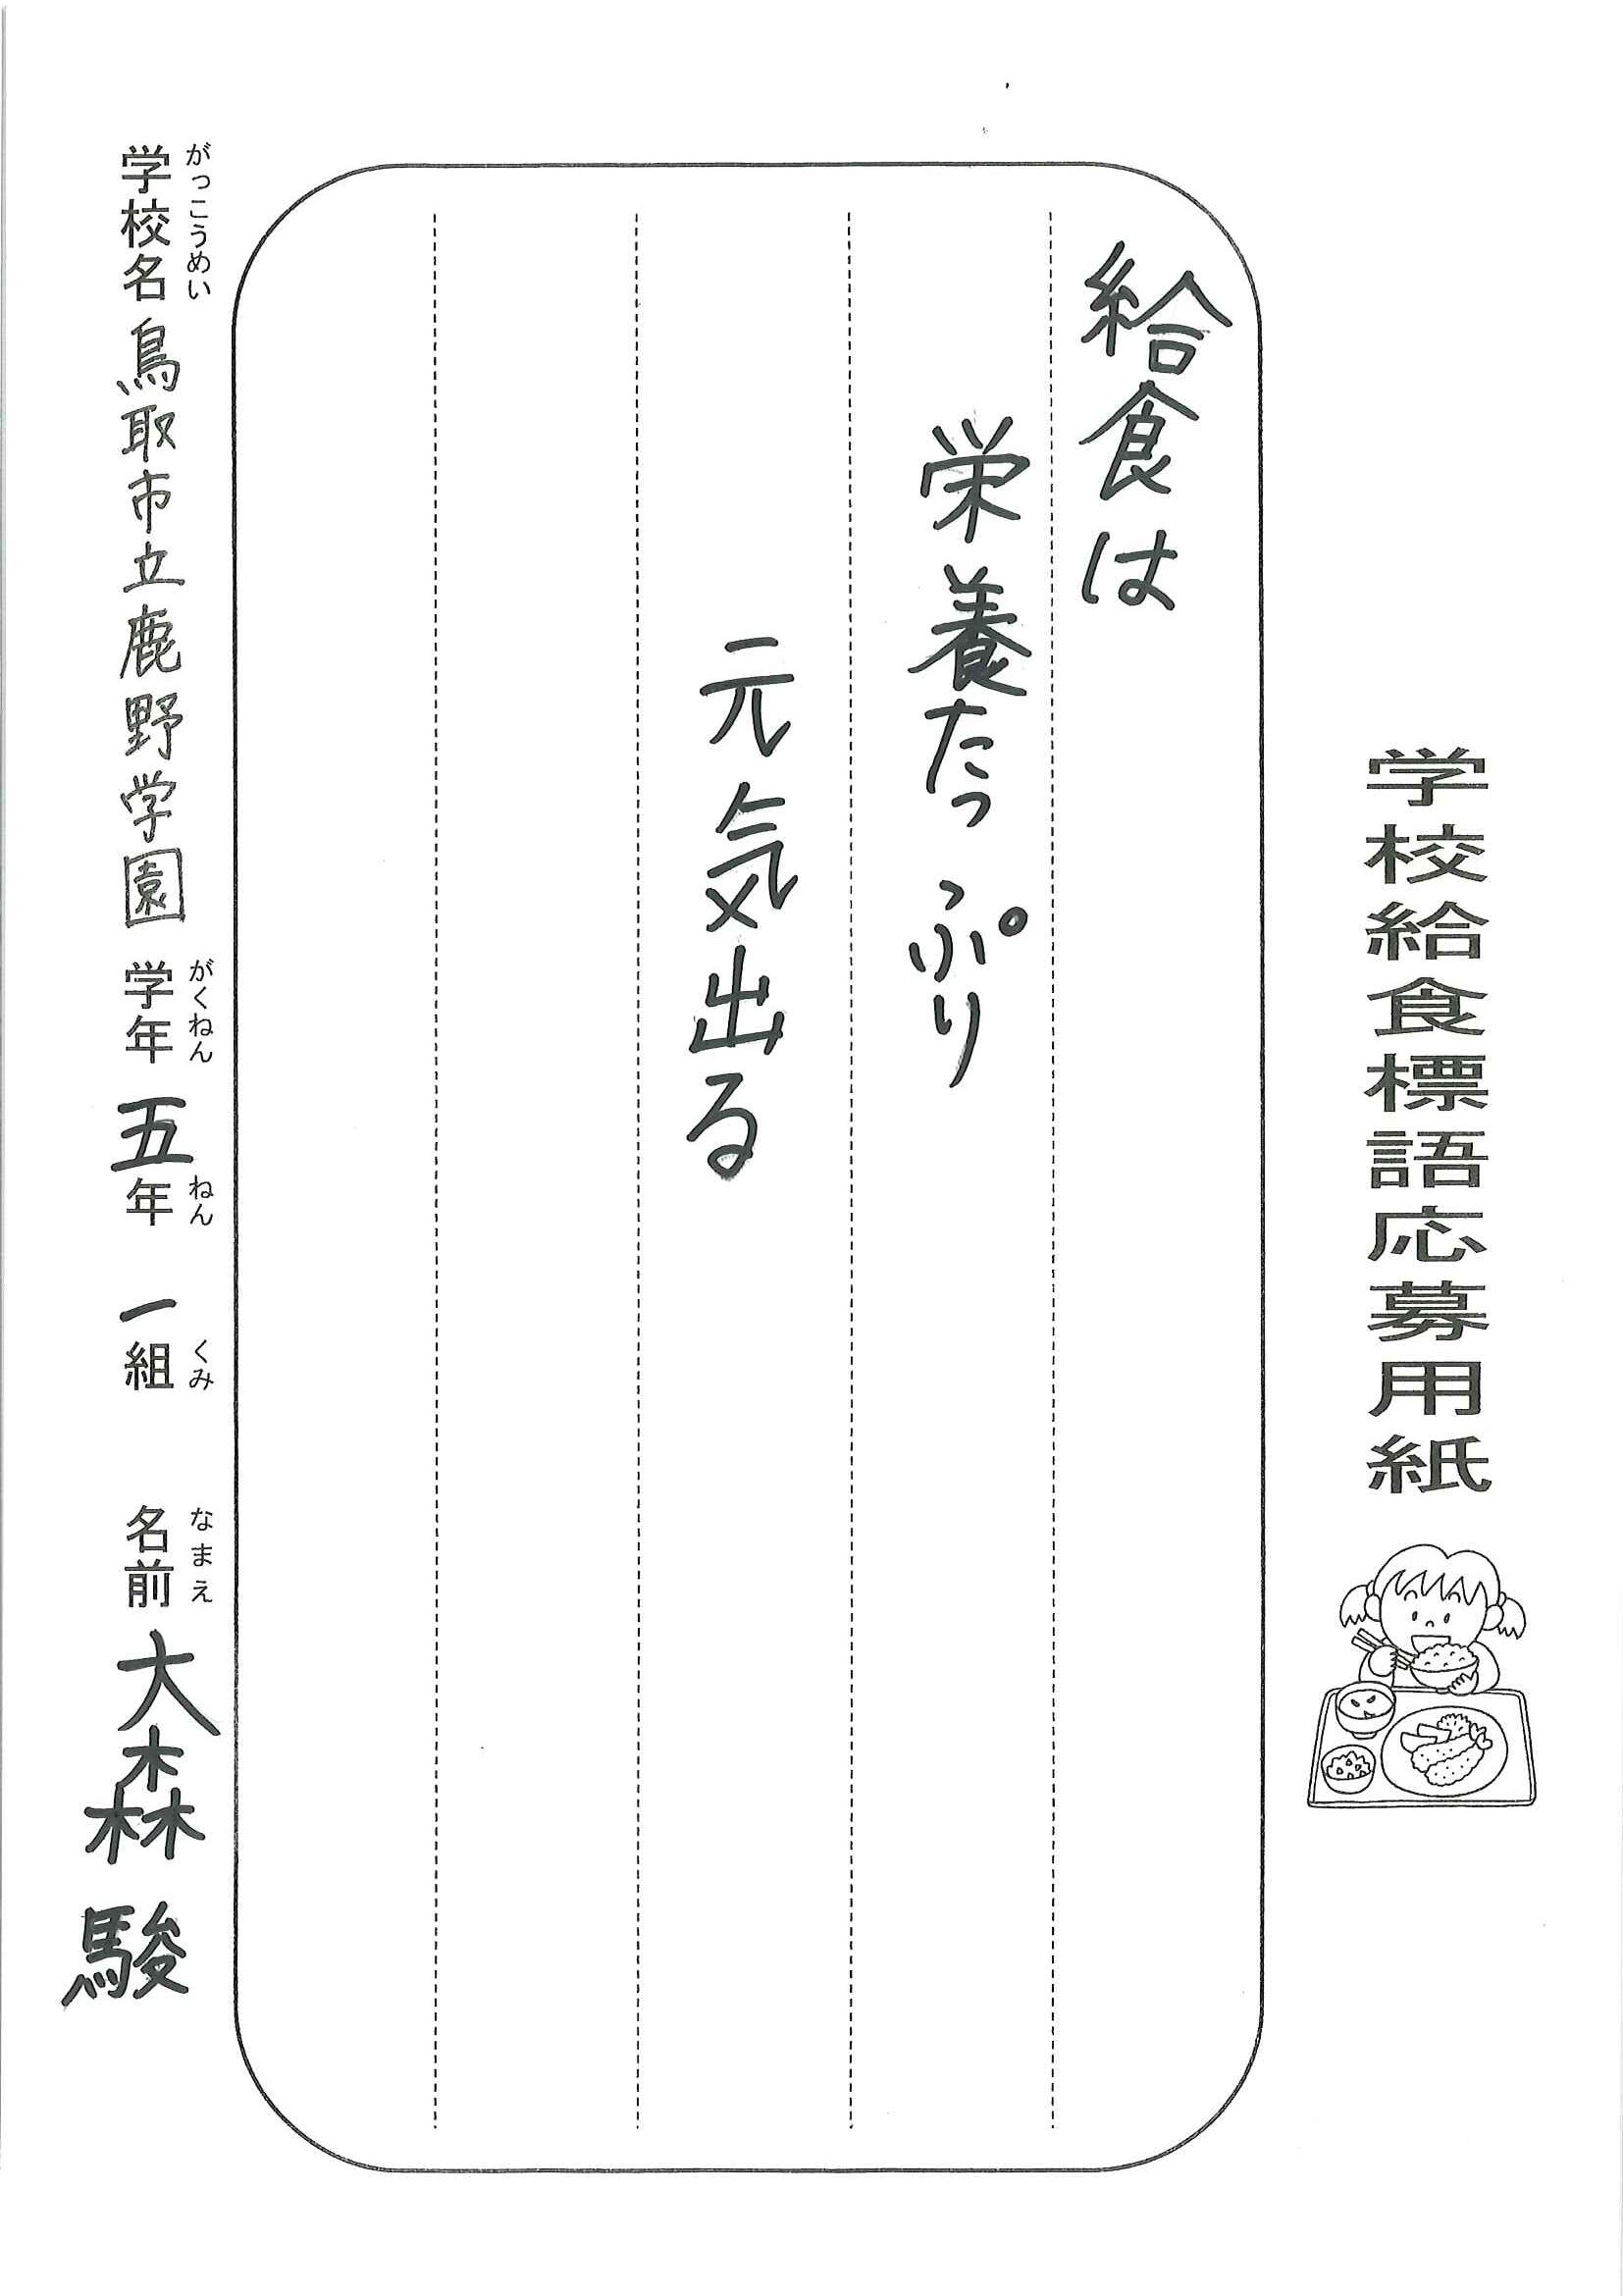 学校給食標語応募用紙
給食は
栄養たっぷり
元気出る
がっこうめい がくねん ねん くみ なまえ
学校名 鳥取市立鹿野学園 学年 五年 一組 名前 大森 駿